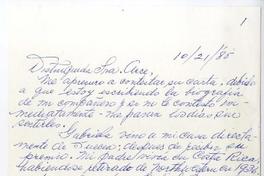 1
10/21/85
Distinguida Sra. Arce,
Me apresuro a contestar su carta, debido
a que estoy escribiendo la biografía
de mi compañero y si no le contesto in-
mediatamente - me pasan los días sin
sentirlos.
Gabriela vino a mi casa directa-
mente de Suecia, después de recibir su
premio. Mi padre vivía en Costa Rica,
habiéndose retirado de Northwestern en 1936